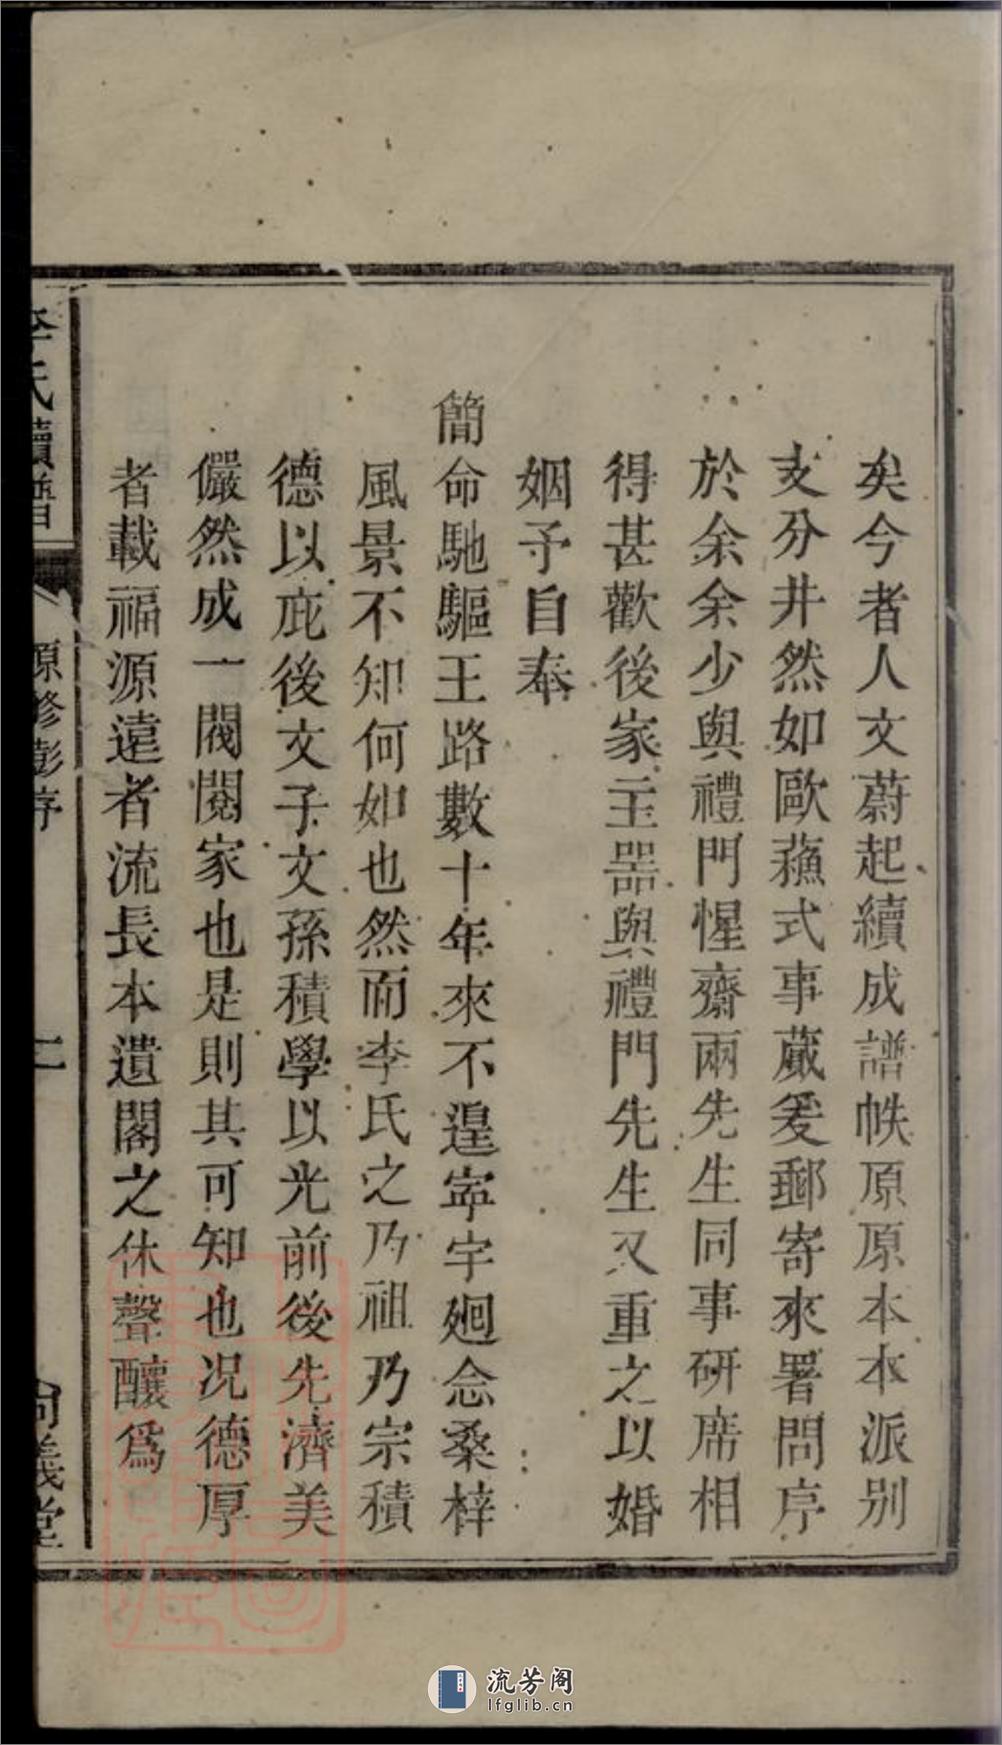 矣今者人文蔚起續成譜帙原原本本派别
支分井然如歐蘓式事蕆爰郵寄來署問序
於余余少與禮門惺齋兩先生同事研席相
得甚歡後家主器與禮門先生又重之以婚
姻予自奉
簡命馳驅王路數十年來不遑寕宇廻念桑梓
風景不知何如也然而李氏之乃祖乃宗積
德以庇後文子文孫積學以光前後先濟美
儼然成一閥閱家也是則其可知也况德厚
者載福源遠者流長本遺閣之休聲釀爲
李氏續譜
原修彭序
二
尚義堂
流芳阁
lfglib.cn